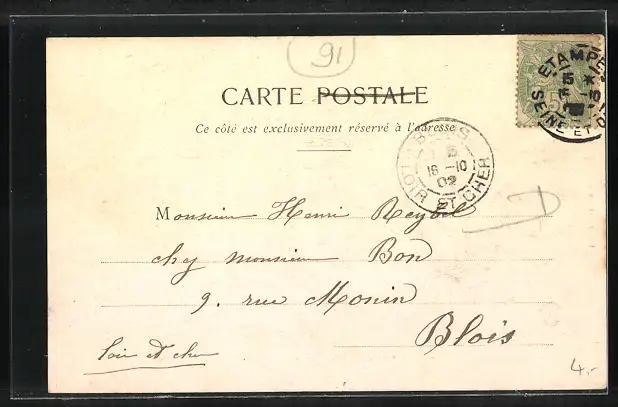 91
CARTE POSTALE
Ce côté est exclusivement réservé à l'adresse
ÉTAMPES
SEINE ET O
BLOIS
16-10
02
LOIR ET CHER
Monsieur Henri Reybel
chez monsieur Bon
9. rue Monin
Blois
Loir et cher
4.-